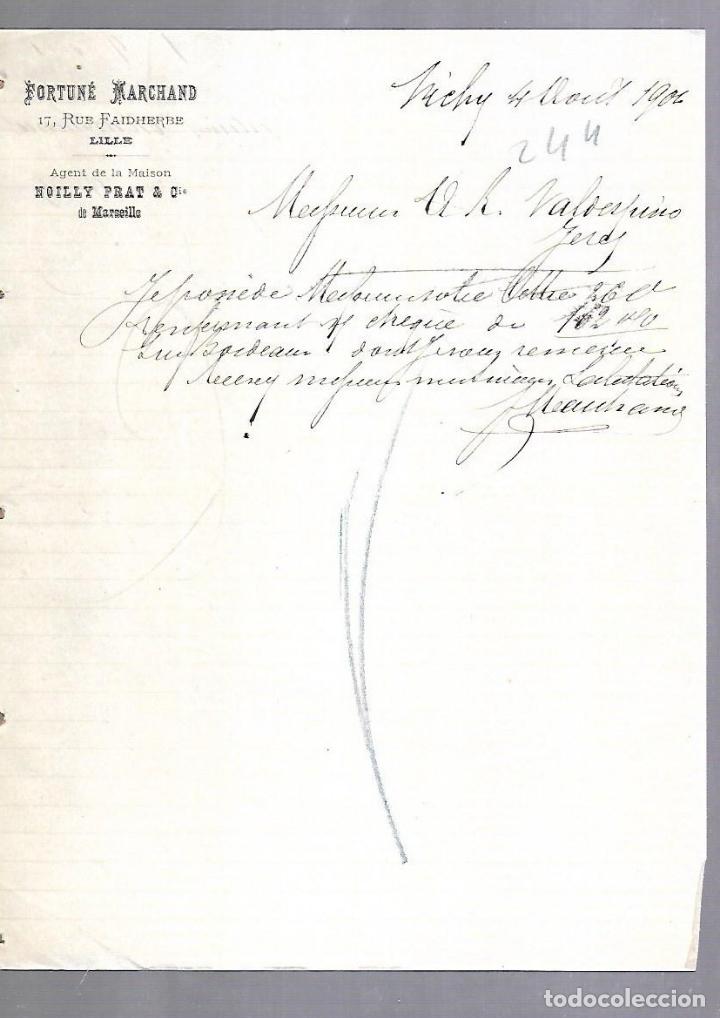 FORTUNÉ MARCHAND
17, RUE FAIDHERBE
LILLE
Agent de la Maison
NOILLY PRAT & Cie
de Marseille
Vichy 4 Août 190
244
Messieurs A R. Valdespino
Jerez
Je possède Messieurs votre lettre 26 Ct
renfermant chèque de 162
sur Bordeaux dont je vous remercie
Recevez messieurs mes Salutations
Marchand
todocoleccion
todocoleccion.net